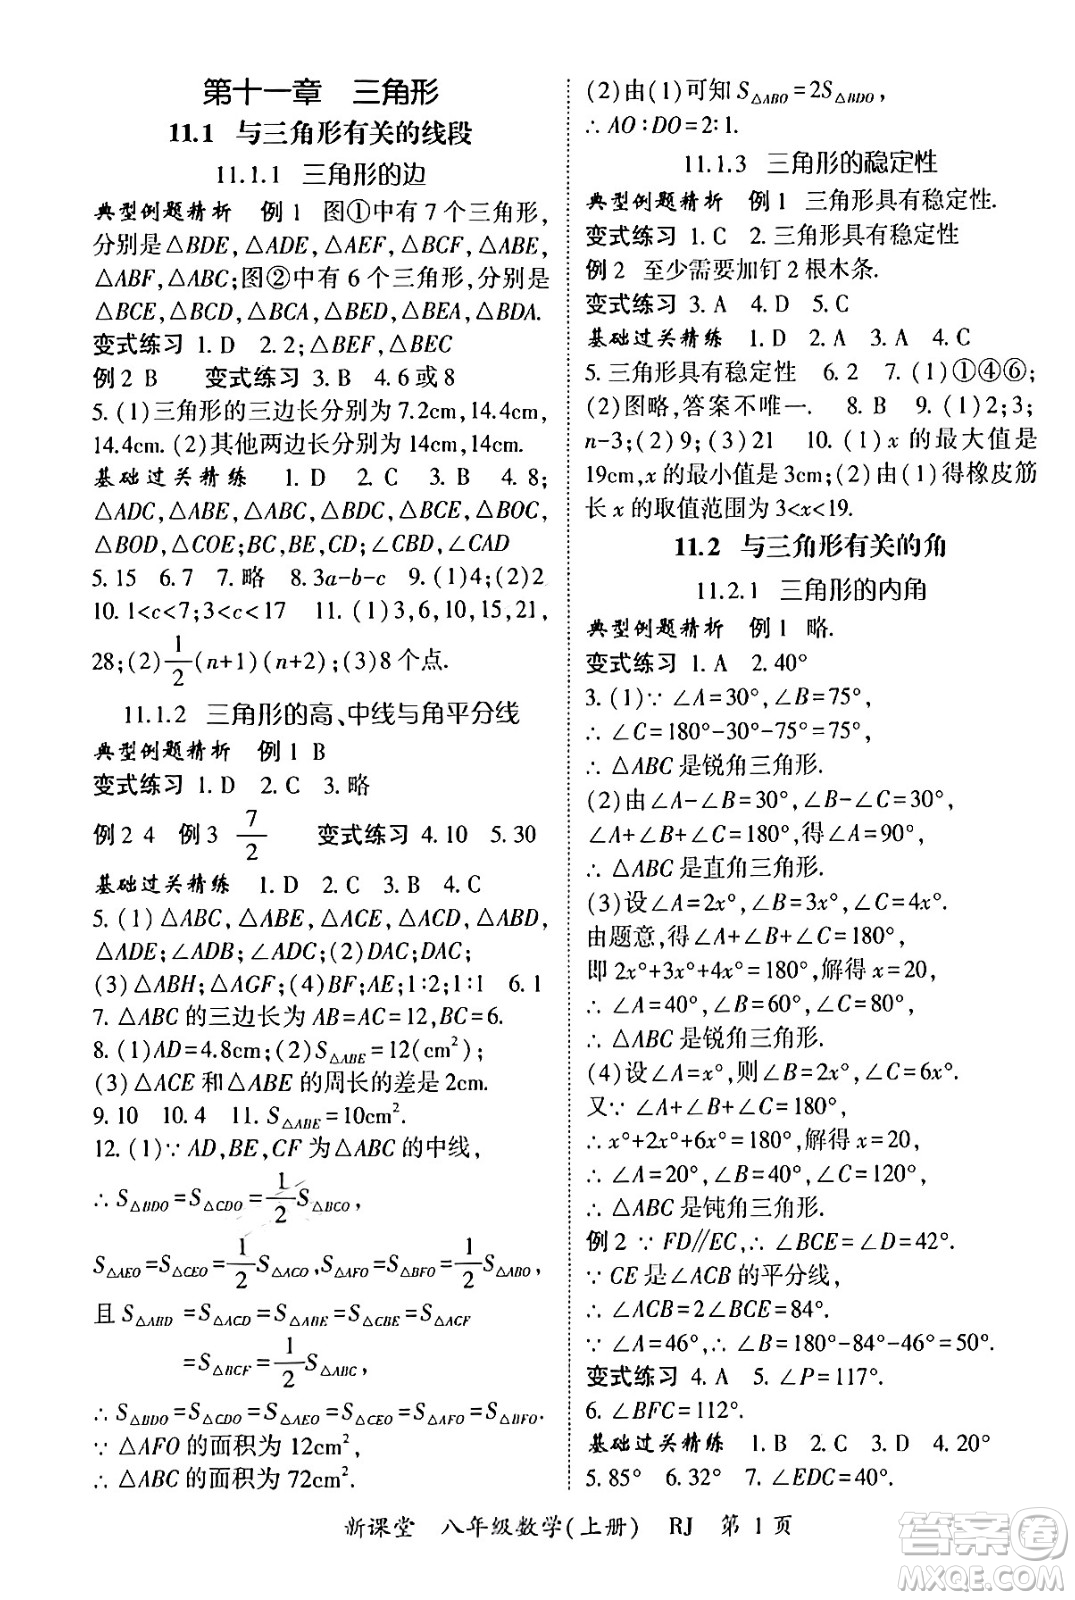 第十一章 三角形
11.1 与三角形有关的线段
11.1.1 三角形的边
典型例题精析 例1 图①中有7个三角形,
分别是△BDE,△ADE,△AEF,△BCF,△ABE,
△ABF,△ABC;图②中有6个三角形,分别是
△BCE,△BCD,△BCA,△BED,△BEA,△BDA.
变式练习 1. D 2. 2;△BEF,△BEC
例2 B 变式练习 3. B 4. 6或8
5. (1)三角形的三边长分别为7.2cm,14.4cm,
14.4cm. (2)其他两边长分别为14cm,14cm.
基础过关精练 1. D 2. C 3. C 4. 8;
△ADC,△ABE,△ABC,△BDC,△BCE,△BOC,
△BOD,△COE;BC,BE,CE;∠CAD
5. 15 6. 7 7. 略 8. 3a-b-c 9. (2)2
10. 1<c<7;3<c<17 11. (1)3,6,10,15,21,
28;(2)1/2(n+1)(n+2);(3)8个点.
11.1.2 三角形的高、中线与角平分线
典型例题精析 例1 B
变式练习 1. D 2. C 3. 略
例2 4 例3 7/2 变式练习 4. 10 5. 30
基础过关精练 1. D 2. C 3. D 4. C
5. (1)△ABC,△ABE,△ACE,△ACD,△ABD,
△ADE;∠ADB;∠ADC;(2)DAC;DAC;
(3)△ABH;△AGF;(4)BF;AE;1∶2;1∶1 6. 1
7. △ABC的三边长为AB=AC=12,BC=6.
8. (1)AD=4.8cm;(2)S△ABE=12(cm²);
(3)△ACE和△ABE的周长的差是2cm.
9. 10 10. 4 11. S△ABE=10cm².
12. (1)∵AD,BE,CF为△ABC的中线,
∴S△BDO=S△CDO=1/2S△BCO,
S△AEO=S△CEO=1/2S△ACO,S△AFO=S△BFO=1/2S△ABO,
且S△ABD=S△ACD=S△ABE=S△CBE=S△ACF
=S△BCF=1/2S△ABC,
∴S△BDO=S△CDO=S△AEO=S△CEO=S△AFO=S△BFO.
∵△AFO的面积为12cm²,
∴△ABC的面积为72cm².
(2)由(1)可知S△ABO=2S△BDO,
∴AO∶DO=2∶1.
11.1.3 三角形的稳定性
典型例题精析 例1 三角形具有稳定性.
变式练习 1. C 2. 三角形具有稳定性
例2 至少需要加钉2根木条.
变式练习 3. A 4. D 5. C
基础过关精练 1. D 2. A 3. A 4. C
5. 三角形具有稳定性 6. 2 7. (1)①④⑥;
(2)图略,答案不唯一. 8. B 9. (1)2;3;
n-3;(2)9;(3)21 10. (1)x的最大值是
19cm,x的最小值是3cm;(2)由(1)得橡皮筋
长x的取值范围为3<x<19.
11.2 与三角形有关的角
11.2.1 三角形的内角
典型例题精析 例1 略.
变式练习 1. A 2. 40°
3. (1)∵∠A=30°,∠B=75°,
∴∠C=180°-30°-75°=75°,
∴△ABC是锐角三角形.
(2)由∠A-∠B=30°,∠B-∠C=30°,
∠A+∠B+∠C=180°,得∠A=90°,
∴△ABC是直角三角形.
(3)设∠A=2x°,∠B=3x°,∠C=4x°.
由题意,得∠A+∠B+∠C=180°,
即2x°+3x°+4x°=180°,解得x=20,
∴∠A=40°,∠B=60°,∠C=80°,
∴△ABC是锐角三角形.
(4)设∠A=x°,则∠B=2x°,∠C=6x°.
又∵∠A+∠B+∠C=180°,
∴x°+2x°+6x°=180°,解得x=20,
∴∠A=20°,∠B=40°,∠C=120°,
∴△ABC是钝角三角形.
例2 ∵FD∥EC,∴∠BCE=∠D=42°.
∵CE是∠ACB的平分线,
∴∠ACB=2∠BCE=84°.
∵∠A=46°,∴∠B=180°-84°-46°=50°.
变式练习 4. A 5. ∠P=117°.
6. ∠BFC=112°.
基础过关精练 1. B 2. C 3. D 4. 20°
5. 85° 6. 32° 7. ∠EDC=40°.
新课堂 八年级数学(上册) RJ 第1页
答案圈
MXQE.COM